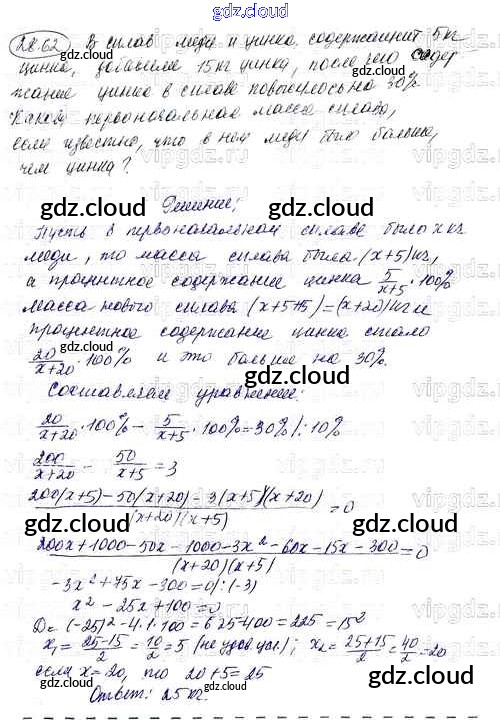 gdz.cloud
28.62 В сплав меди и цинка, содержащий 5 кг
цинка, добавили 15 кг цинка, после чего содер-
жание цинка в сплаве повысилось на 30%
Какой первоначальная масса сплава,
если известно, что в нём меди было больше,
чем цинка?
gdz.cloud
gdz.cloud
Решение:
Пусть в первоначальном сплаве было x кг
меди, то масса сплава была (x+5) кг,
а процентное содержание цинка 5/(x+5) · 100%
Масса нового сплава (x+5+15)=(x+20) кг и
процентное содержание цинка стало
20/(x+20) · 100% и это больше на 30%.
gdz.cloud
gdz.cloud
Составляем уравнение:
20/(x+20) · 100% - 5/(x+5) · 100% = 30% /: 10%
200/(x+20) - 50/(x+5) = 3
(200(x+5)-50(x+20)-3(x+5)(x+20))/((x+20)(x+5)) = 0
(200x+1000-50x-1000-3x²-60x-15x-300)/((x+20)(x+5)) = 0
-3x²+75x-300=0 /:(-3)
x²-25x+100=0
D=(-25)²-4·1·100=625-400=225=15²
x₁=(25-15)/2=10/2=5 (не удов. усл.); x₂=(25+15)/2=40/2=20
если x=20, то 20+5=25
Ответ: 25 кг.
gdz.cloud
gdz.cloud
gdz.cloud